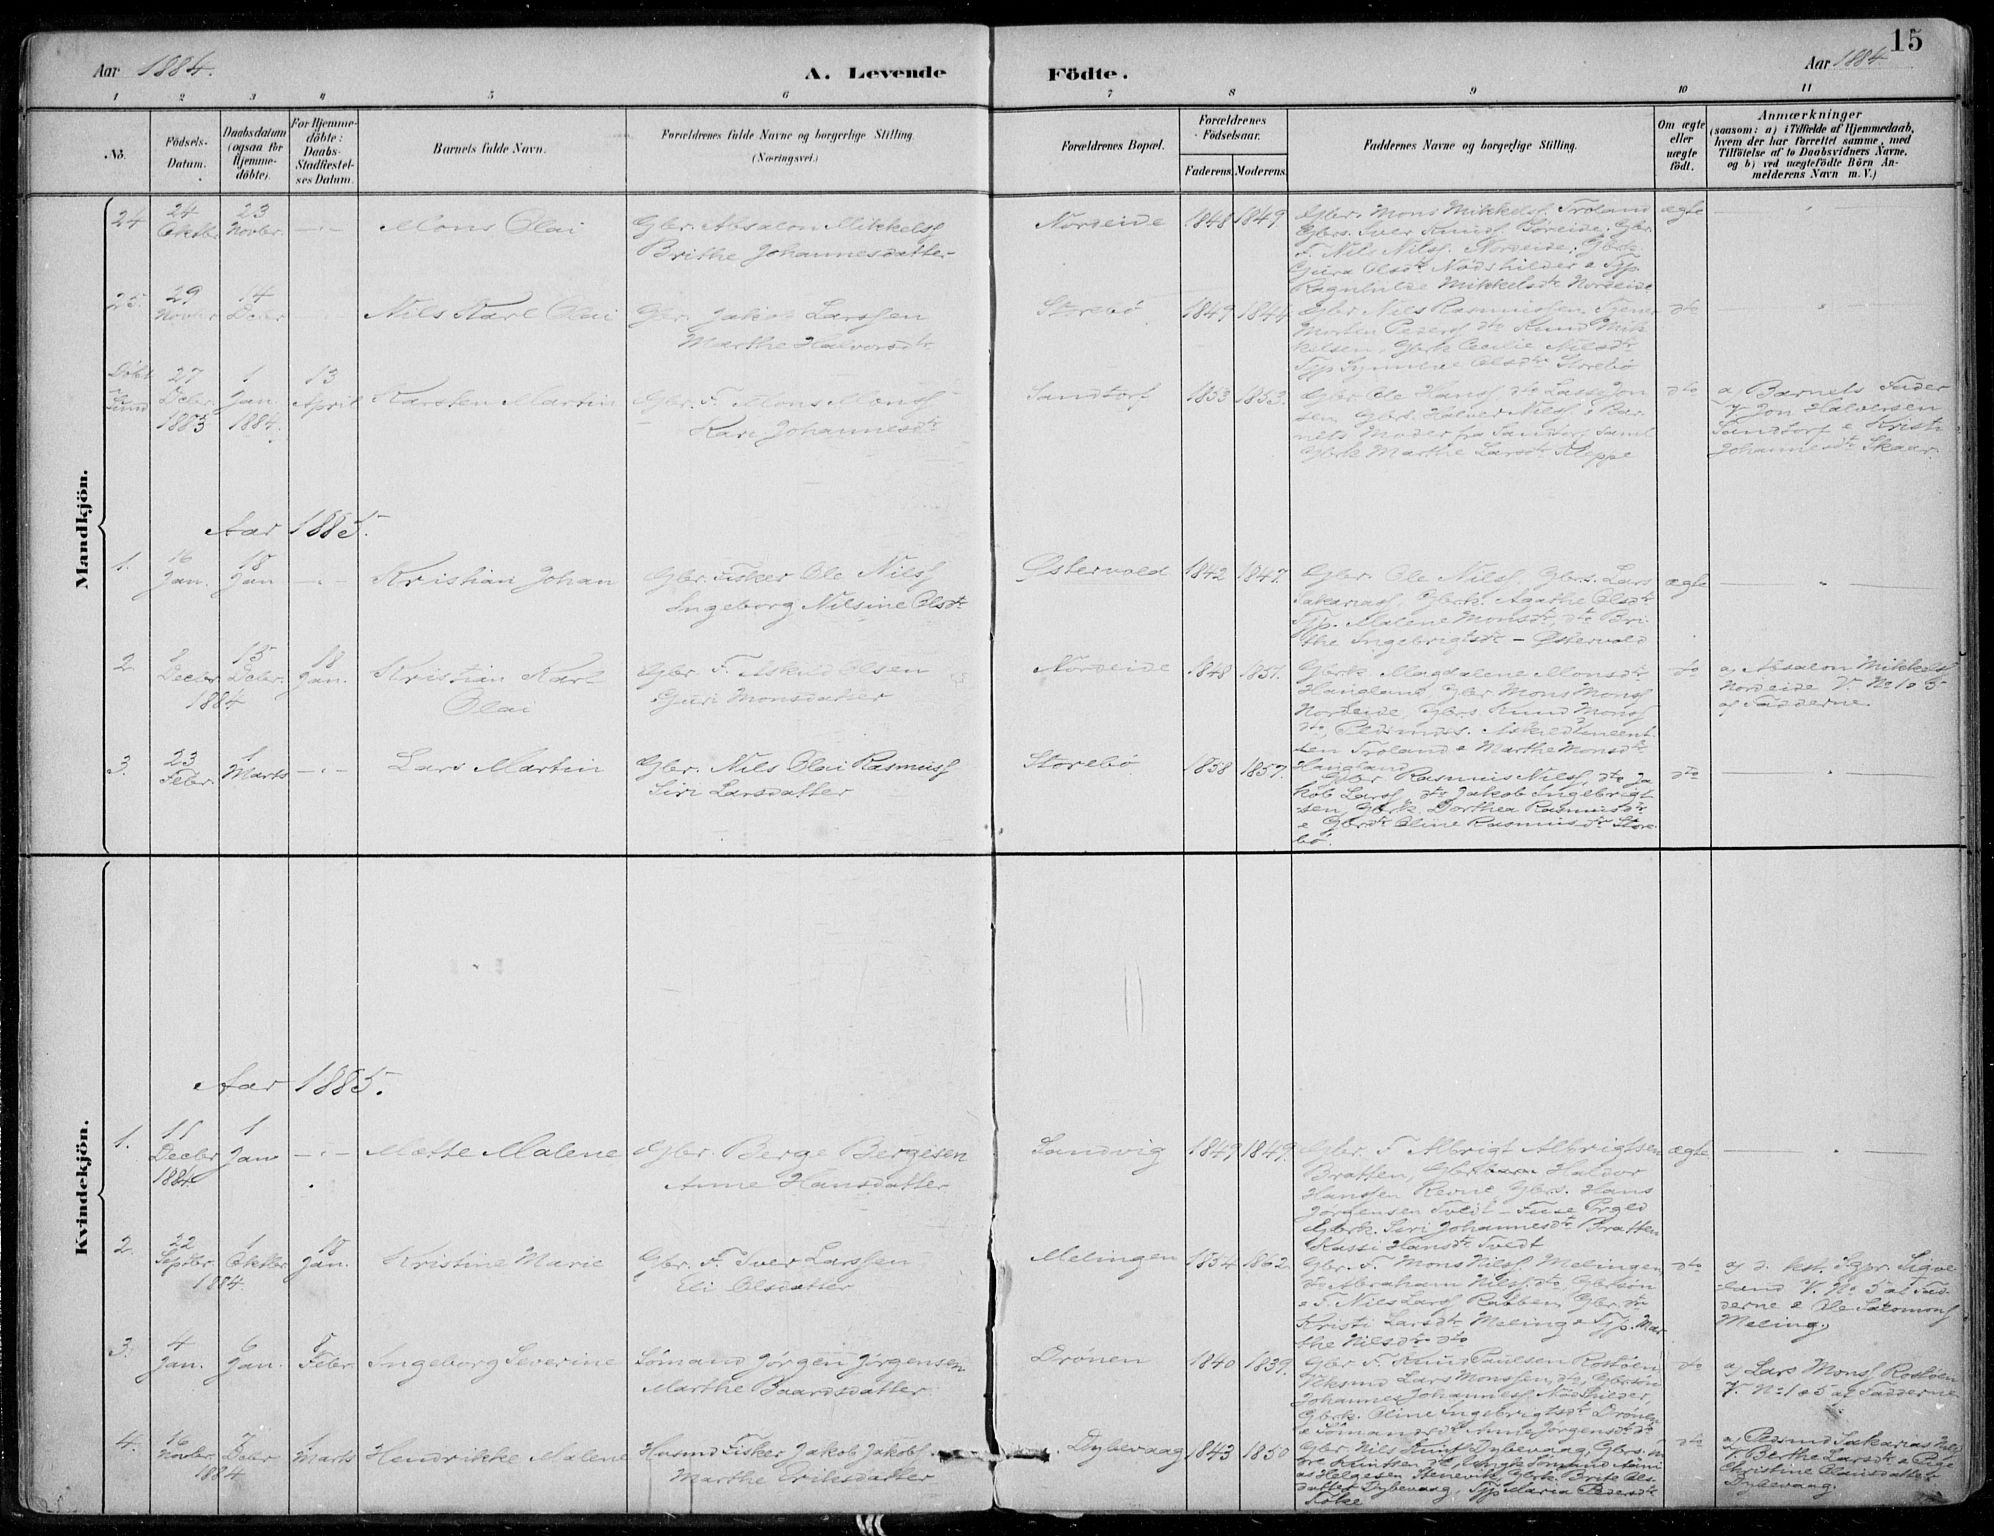 15
Aar 1884.
A. Levende Födte.
Aar 1884
1 2 3 4 5 6 7 8 9 10 11
No.
Födsels-
Datum.
Daabsdatum
(ogsaa for
Hjemme-
döbte).
For Hjemme-
döbte:
Daabs-
Stadfestel-
ses Datum.
Barnets fulde Navn.
Forældrenes fulde Navne og borgerlige Stilling.
(Næringsvei.)
Forældrenes Bopæl.
Forældrenes
Födselsaar.
Faderens. Moderens.
Faddernes Navne og borgerlige Stilling.
Om ægte
eller
uægte
födt.
Anmærkninger
(saasom: a) i Tilfælde af Hjemmedaab,
hvem der har forrettet samme, med
Tilföielse af to Daabsvidners Navne.
og b) ved uægtefödte Börn An-
melderens Navn m. V.)
Mandkjön.
24 24 Oktbr 23 Novbr. Mons Olai
Gbr. Absalon Mikkelss
Brithe Johannesdatter
Nordeide 1848 1849
Gbr. Mons Mikkelss. Troland
Gbrs. Iver Knuds Boreide, Gbr.
F. Nils Nilss. Nordeide, Gbrk.
Gura Olsdtr Nødshilder & Tjp.
Ragnhilde Mikkelsdtr Nordeide
ægte
25 29 Novbr 14 Decbr Nils Karl Olai
Gbr. Jakob Larssen
Marthe Halvorsdtr
Storebö 1849 1844
Gbr Nils Rasmussen, Tjener
Morten Pederss, dto Knud Mik-
kelsen, Gbrk Cecilie Nilsdtr
Tjp Synneve Olsdtr Storebö
dto
27 Decbr. 1883 1 Jan. 1884. 13 April Karsten Martin
Gbr. F. Mons Monss
Kari Johannesdtr
Sandtorf 1853 1853.
Gbr Ole Hanss, dto Lasse Jon-
sen, Gbrs. Halvor Nilss & Bar-
nets Moder fra Sandtorf samt
Gbrk Marthe Larsdtr Kleppe
dto
a, Barnets Fader
V Jon Halversen
Sandtorf & Kristi
Johannesdtr Skaar.
Aar 1885.
1. 16 Jan. 18 Jan Kristian Johan
Gbr. Fisker Ole Nilss
Ingeborg Nilsine Olsdtr
Østervold 1842 1847.
Gbr. Ole Nilss, Gbrs. Lars
Sakariass, Gbrk. Agathe Olsdtr
Tjp. Malene Monsdtr, dto Bri-
the Ingebrigtsdtr - Østervold
ægte
2. 1 Decbr 15 Decbr. 1884 18 Jan. Kristian Karl
Olai
Gbr. F. Askild Olsen
Guri Monsdatter
Nordeide 1848 1851.
Gbrk. Magdalene Monsdtr
Haugland, Gbr Mons Monss
Nordeide, Gbrs. Knud Monss
dto, Pedsmds. Askild
sen Troland & Marthe Monsdtr
Haugland
dto
a, Absalon Mikkelss
Nordeide V. No 1 & 5
af Fadderne.
3. 23 Febr. 1 Marts Lars Martin
Gbr. Nils Olai Rasmuss
Siri Larsdatter
Storebö 1858 1857.
Gbr Rasmus Nilss, dto Ja-
kob Larss, dto Jakob Ingebrigt-
sen, Gbrk. Dorthea Rasmusdtr
& Gbrdtr Oline Rasmusdtr Store-
bö.
dto
Kvindekjön.
Aar 1885.
1. 15 Decbr 1884 1 Jan Mætte Malene
Gbr. Berge Bergesen
Anne Hansdatter
Sandvig 1849 1849.
Gbr. F Albrigt Albrigtsen
Bratten, Haldor
Hanssen Revne, Gbrs. Hans
Jørgensen Tvedt - Fuse Prgld
Gbrk. Siri Johannesdtr Bratten
Kassi Hansdtr Tvedt
ægte
2. 22 Septbr. 1 Oktbr 1884 18 Jan. Kristine Marie
Gbr. F. Iver Larssen
Eli Olsdatter
Melingen 1854 1862.
Gbr. F. Mons Nilss Melingen
dto Abraham Nilss. dto, Gbrsøn
& F. Nils Larss Rabben, Gbr. dtr
Kristi Larsdtr Meling & Tjp. Mar-
the Nilsdtr dto
dto
a, d. kst. Sgpr. Sigve-
land V. No 5 af Fad-
derne & Ole Salomons
Meling.
3. 4 Jan. 6 Jan. 8 Febr. Ingeborg Severine
Sømand Jørgen Jørgensen
Marthe Baardsdatter
Drönen 1840 1839.
Gbr F. Knud Paulsen Rostöen
Lars Monssen, dto, Gbrsön
Johannes Johanness Nødshilder,
Gbrk. Oline Ingebrigtsdtr Drönen
& Sømandsdtr Anne Jørgensdtr dto
dto
a, Lars Monss Rostöen
V. No 1 & 5 af Fadderne
4. 16 Novbr. 7 Decbr. 1884 1 Marts Hendrikke Malene
Husmd Fisker Jakob Jakobs
Marthe Eriksdatter
Dybevaag 1843 1850
Gbr. Nils Knuts Dybevaag, Gbrs.
Knutsen dto, Sømand
Helgesen Stenevik, Gbrk. Brite Ols-
datter Dybevaag, Tjp Maria Pedersdtr
dto
a, Pedsmd Sakarias
V. Berthe Larsdtr &
Christine Clausdatter
Dybevaag.